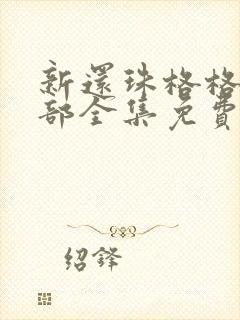 新還珠格格
部全集免費
紹鋒